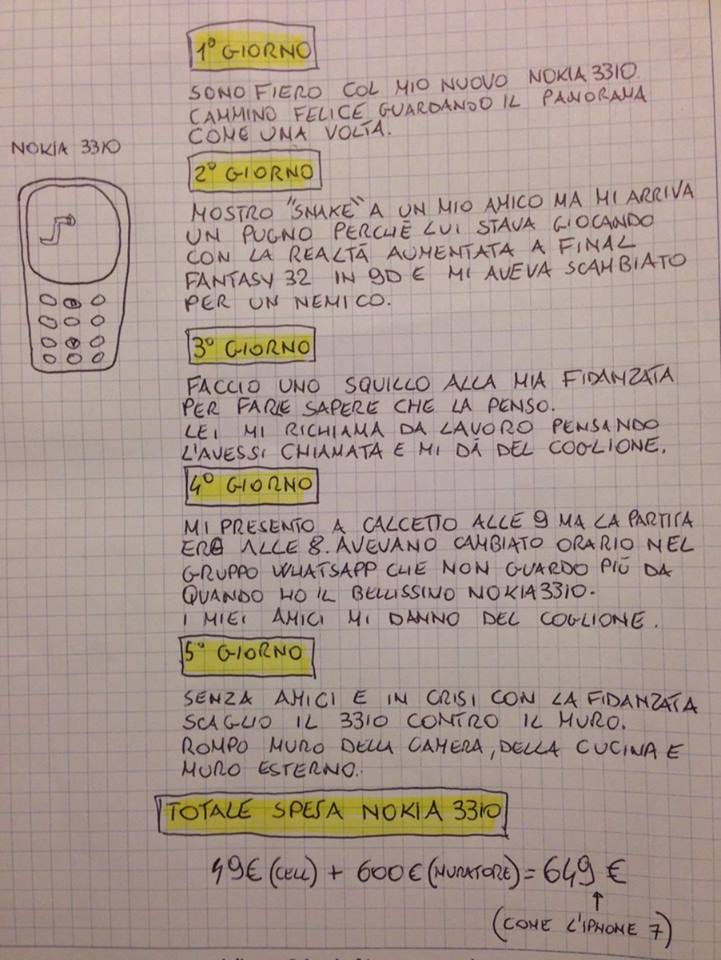 1° GIORNO
SONO FIERO COL MIO NUOVO NOKIA 3310.
CAMMINO FELICE GUARDANDO IL PANORAMA
COME UNA VOLTA.
NOKIA 3310
2° GIORNO
MOSTRO "SNAKE" A UN MIO AMICO MA MI ARRIVA
UN PUGNO PERCHÈ LUI STAVA GIOCANDO
CON LA REALTÀ AUMENTATA A FINAL
FANTASY 32 IN 9D E MI AVEVA SCAMBIATO
PER UN NEMICO.
3° GIORNO
FACCIO UNO SQUILLO ALLA MIA FIDANZATA
PER FARLE SAPERE CHE LA PENSO.
LEI MI RICHIAMA DA LAVORO PENSANDO
L'AVESSI CHIAMATA E MI DÀ DEL COGLIONE.
4° GIORNO
MI PRESENTO A CALCETTO ALLE 9 MA LA PARTITA
ERA ALLE 8. AVEVANO CAMBIATO ORARIO NEL
GRUPPO WHATSAPP CHE NON GUARDO PIÙ DA
QUANDO HO IL BELLISSIMO NOKIA 3310.
I MIEI AMICI MI DANNO DEL COGLIONE.
5° GIORNO
SENZA AMICI E IN CRISI CON LA FIDANZATA
SCAGLIO IL 3310 CONTRO IL MURO.
ROMPO MURO DELLA CAMERA, DELLA CUCINA E
MURO ESTERNO.
TOTALE SPESA NOKIA 3310
49€ (CELL) + 600€ (MURATORE) = 649 €
(COME L'IPHONE 7)